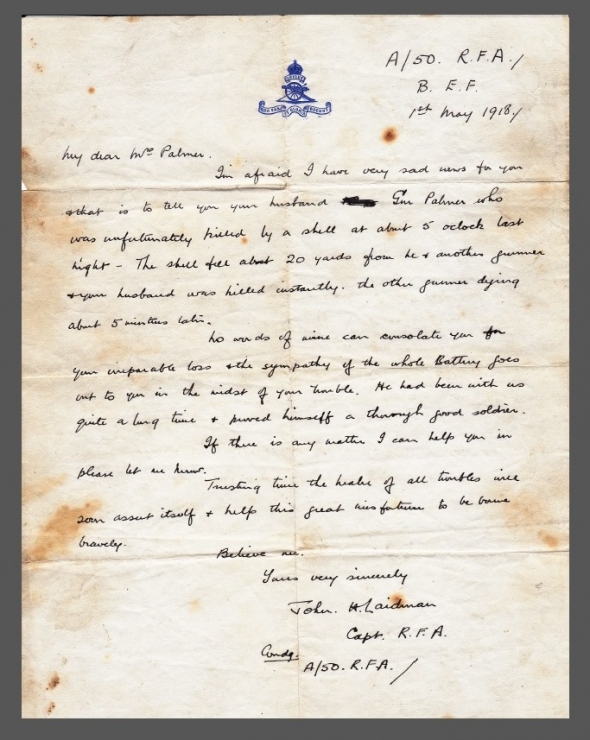 A/50. R.F.A./
B. E. F.
1st May 1918./
My dear Mrs Palmer.
I'm afraid I have very sad news for you
& that is to tell you your husband Gnr Palmer who
was unfortunately killed by a shell at about 5 oclock last
night – The shell fell about 20 yards from he & another gunner
& your husband was killed instantly. the other gunner dying
about 5 minutes later.
No words of mine can consolate you for
your irreparable loss & the sympathy of the whole Battery goes
out to you in the midst of your trouble. He had been with us
quite a long time & proved himself a thorough good soldier.
If there is any matter I can help you in
please let me know.
Trusting time the healer of all troubles will
soon assert itself & help this great misfortune to be borne
bravely.
Believe me.
Yours very sincerely
John. H. Laidman
Capt. R.F.A.
Comdg.
A/50. R.F.A. /